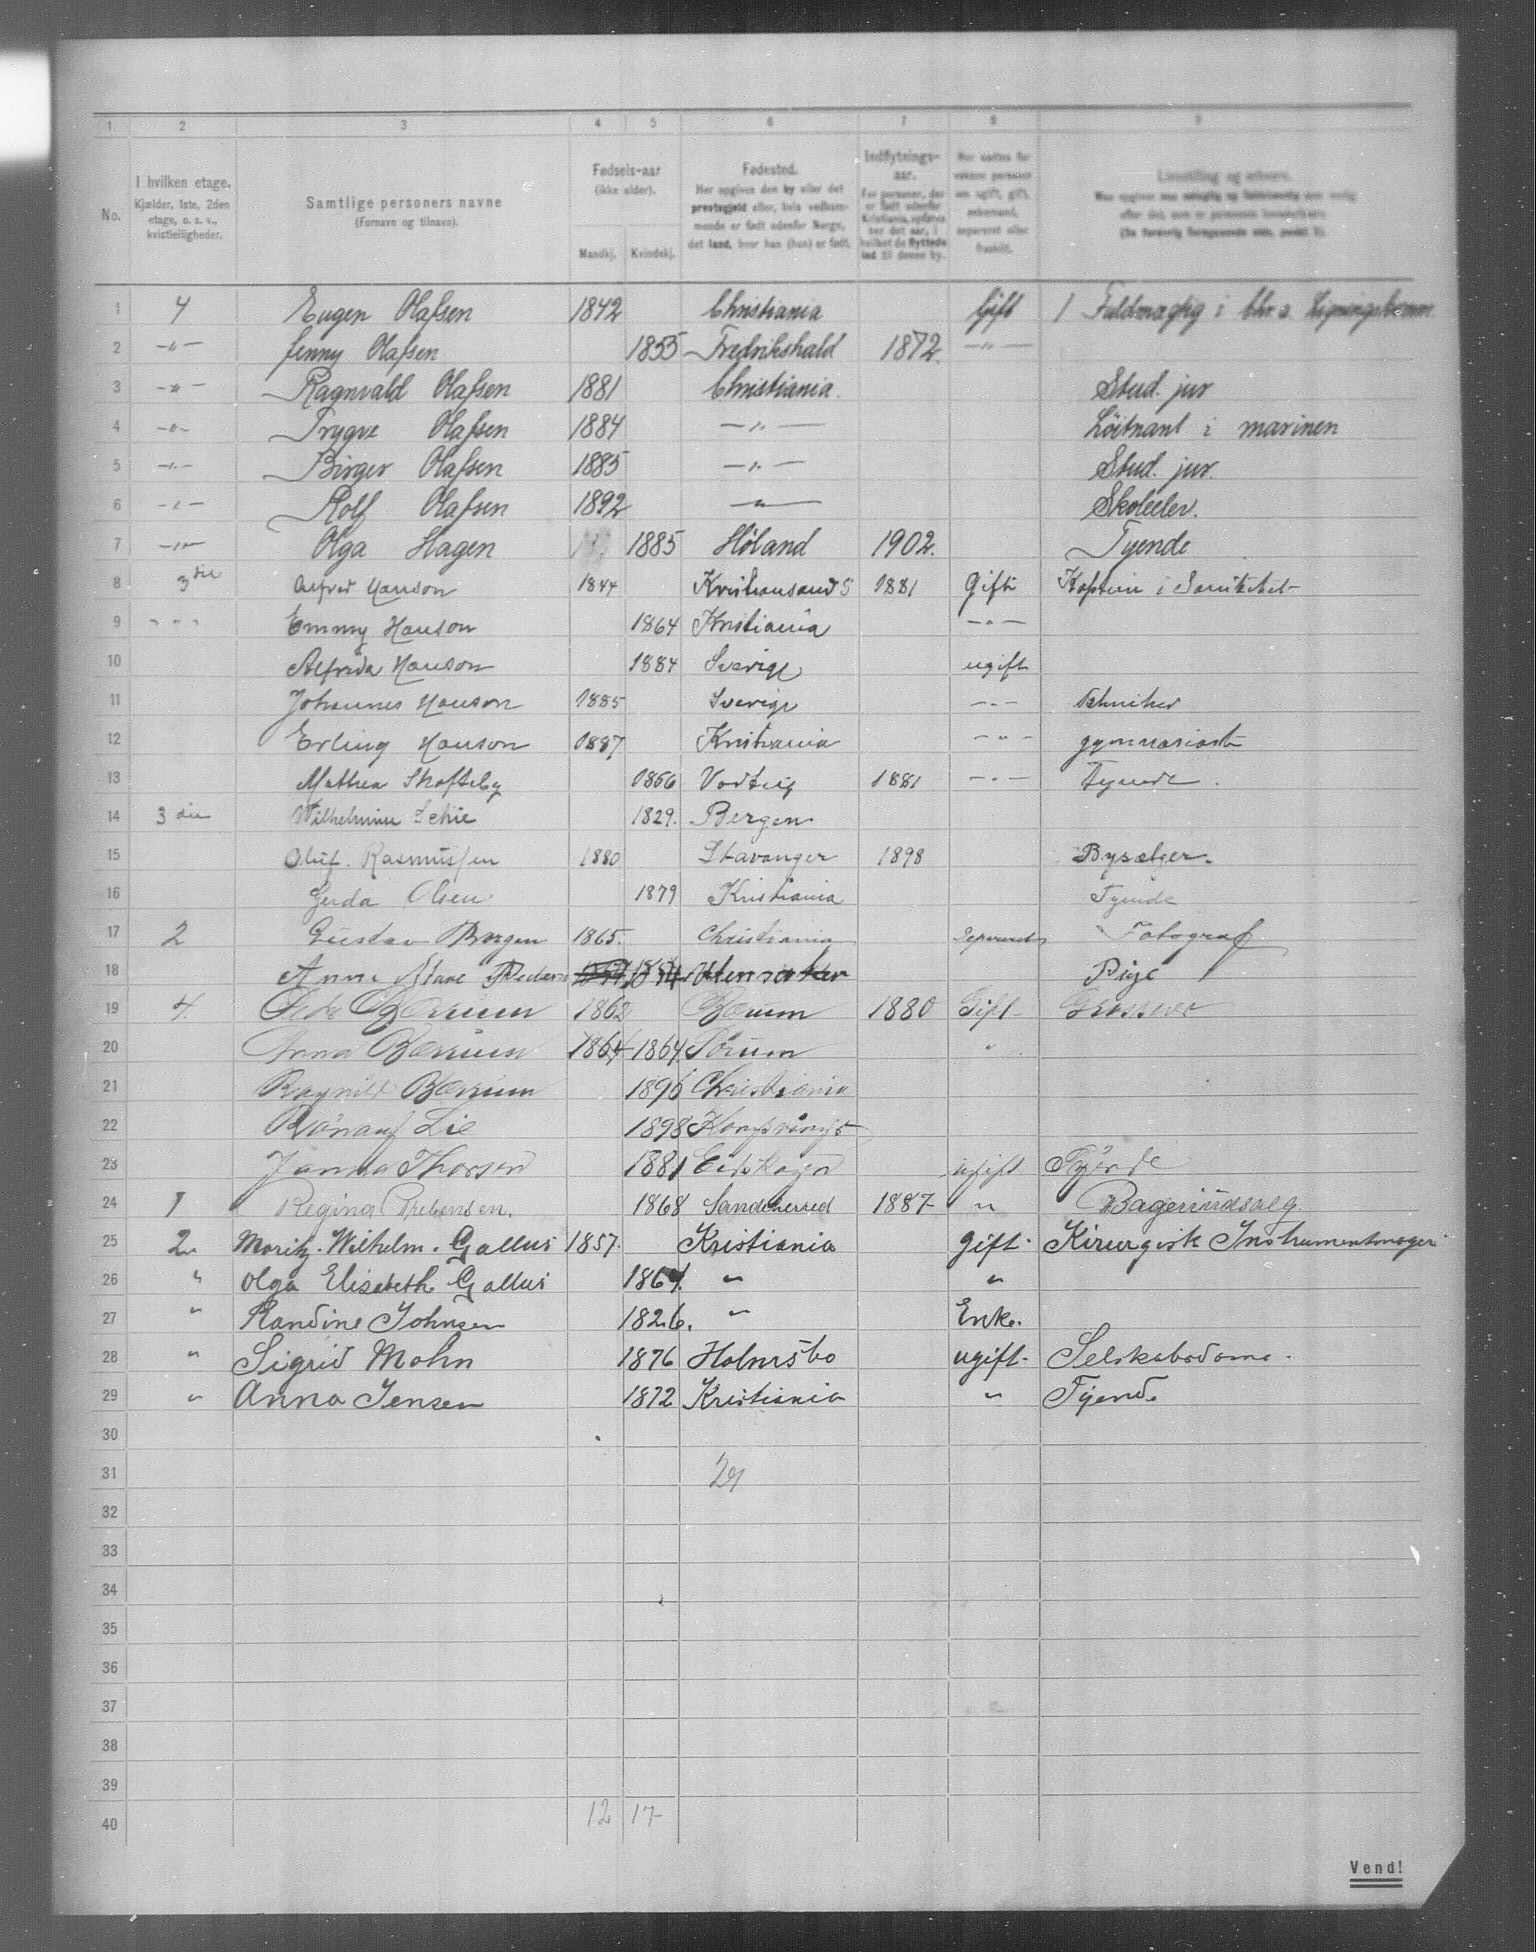 1 2 3 4 5 6 7 8 9
No.
I hvilken etage. Kjælder, 1ste, 2den etage, o. s. v., kvistleiligheder.
Samtlige personers navne (Fornavn og tilnavn).
Fødsels-aar (ikke alder). Mandkj. Kvindekj.
Fødested. Her opgives den by eller det prestegjeld eller, hvis vedkommende er født udenfor Norge, det land, hvor han (hun) er født.
Indflytnings-aar. For personer, der er født udenfor Kristiania, opføres her det aar, i hvilket de flyttede ind til denne by.
1 4 Eugen Olafsen 1842 Christiania Gift 1 Fuldmægtig i
2 —"— Jenny Olafsen 1855 Fredrikshald 1872. —"—
3 —"— Ragnvald Olafsen 1881 Christiania. Stud. jur
4 —"— Trygve Olafsen 1884 —"— Løitnant i marinen
5 —"— Birger Olafsen 1885 —"— Stud. jur.
6 —"— Rolf Olafsen 1892 —"— Skoleelev.
7 —"— Olga Hagen 1885 Høland 1902. Tyende
8 3die Alfred Hanson 1844 Kristiansand S 1881 Gift Kaptein i Sanitetet
9 " " " Emmy Hanson 1864 Kristiania —"—
10 Alfrida Hanson 1884 Sverige ugift
11 Johannes Hanson 1885 Sverige —"— tekniker
12 Erling Hanson 1887 Kristiania —"— gymnasiast
13 Mathea Skofteby 1866 1881 —"— Tyende.
14 3die Wilhelmine Schie 1829. Bergen
15 Oluf. Rasmussen 1880 Stavanger 1898 Bysælger.
16 Gerda Olsen 1879 Kristiania Tyende
17 2 Gustav Borgen 1865. Christiania Separeret Fotograf
18 Anna Pige
19 4. Bærum 1862 Bærum 1880 Gift Grosserer
20 Anna Bærum 1864 1864. Sørum "
21 Ragnild Bærum 1896 Christiania
22 Rønaug Lie 1898 Kongsvinger
23 Janna Thorsen 1881 Eidskogen ugift Tyende
24 1 Regina Prebensen. 1868 Sandeherred 1887 " Bageriudsalg.
25 2. Moritz. Wilhelm. Gallus 1857. Kristiania gift. Kirurgisk Instrumentmager
26 " Olga Elisabeth Gallus 1864. " "
27 " Randine Johnsen 1826. " Enke.
28 " Sigrid Mohn 1876 Holmsbo ugift. Selskabsdame.
29 " Anna Jensen 1872 Kristiania " Tyende
30
31 29
32
33
34
35
36
37
38
39
40 12 17
Vend!